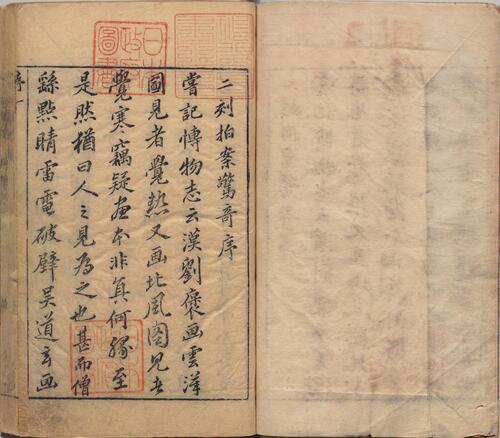 日本
政府
圖書
二刻拍案驚奇序
嘗記博物志云漢劉褒画雲漢
圖見者覺熱又画北風圖見者
覺寒竊疑画本非真何緣至
是然猶曰人之見為之也甚而僧
繇點睛雷電破壁吳道玄画
序一